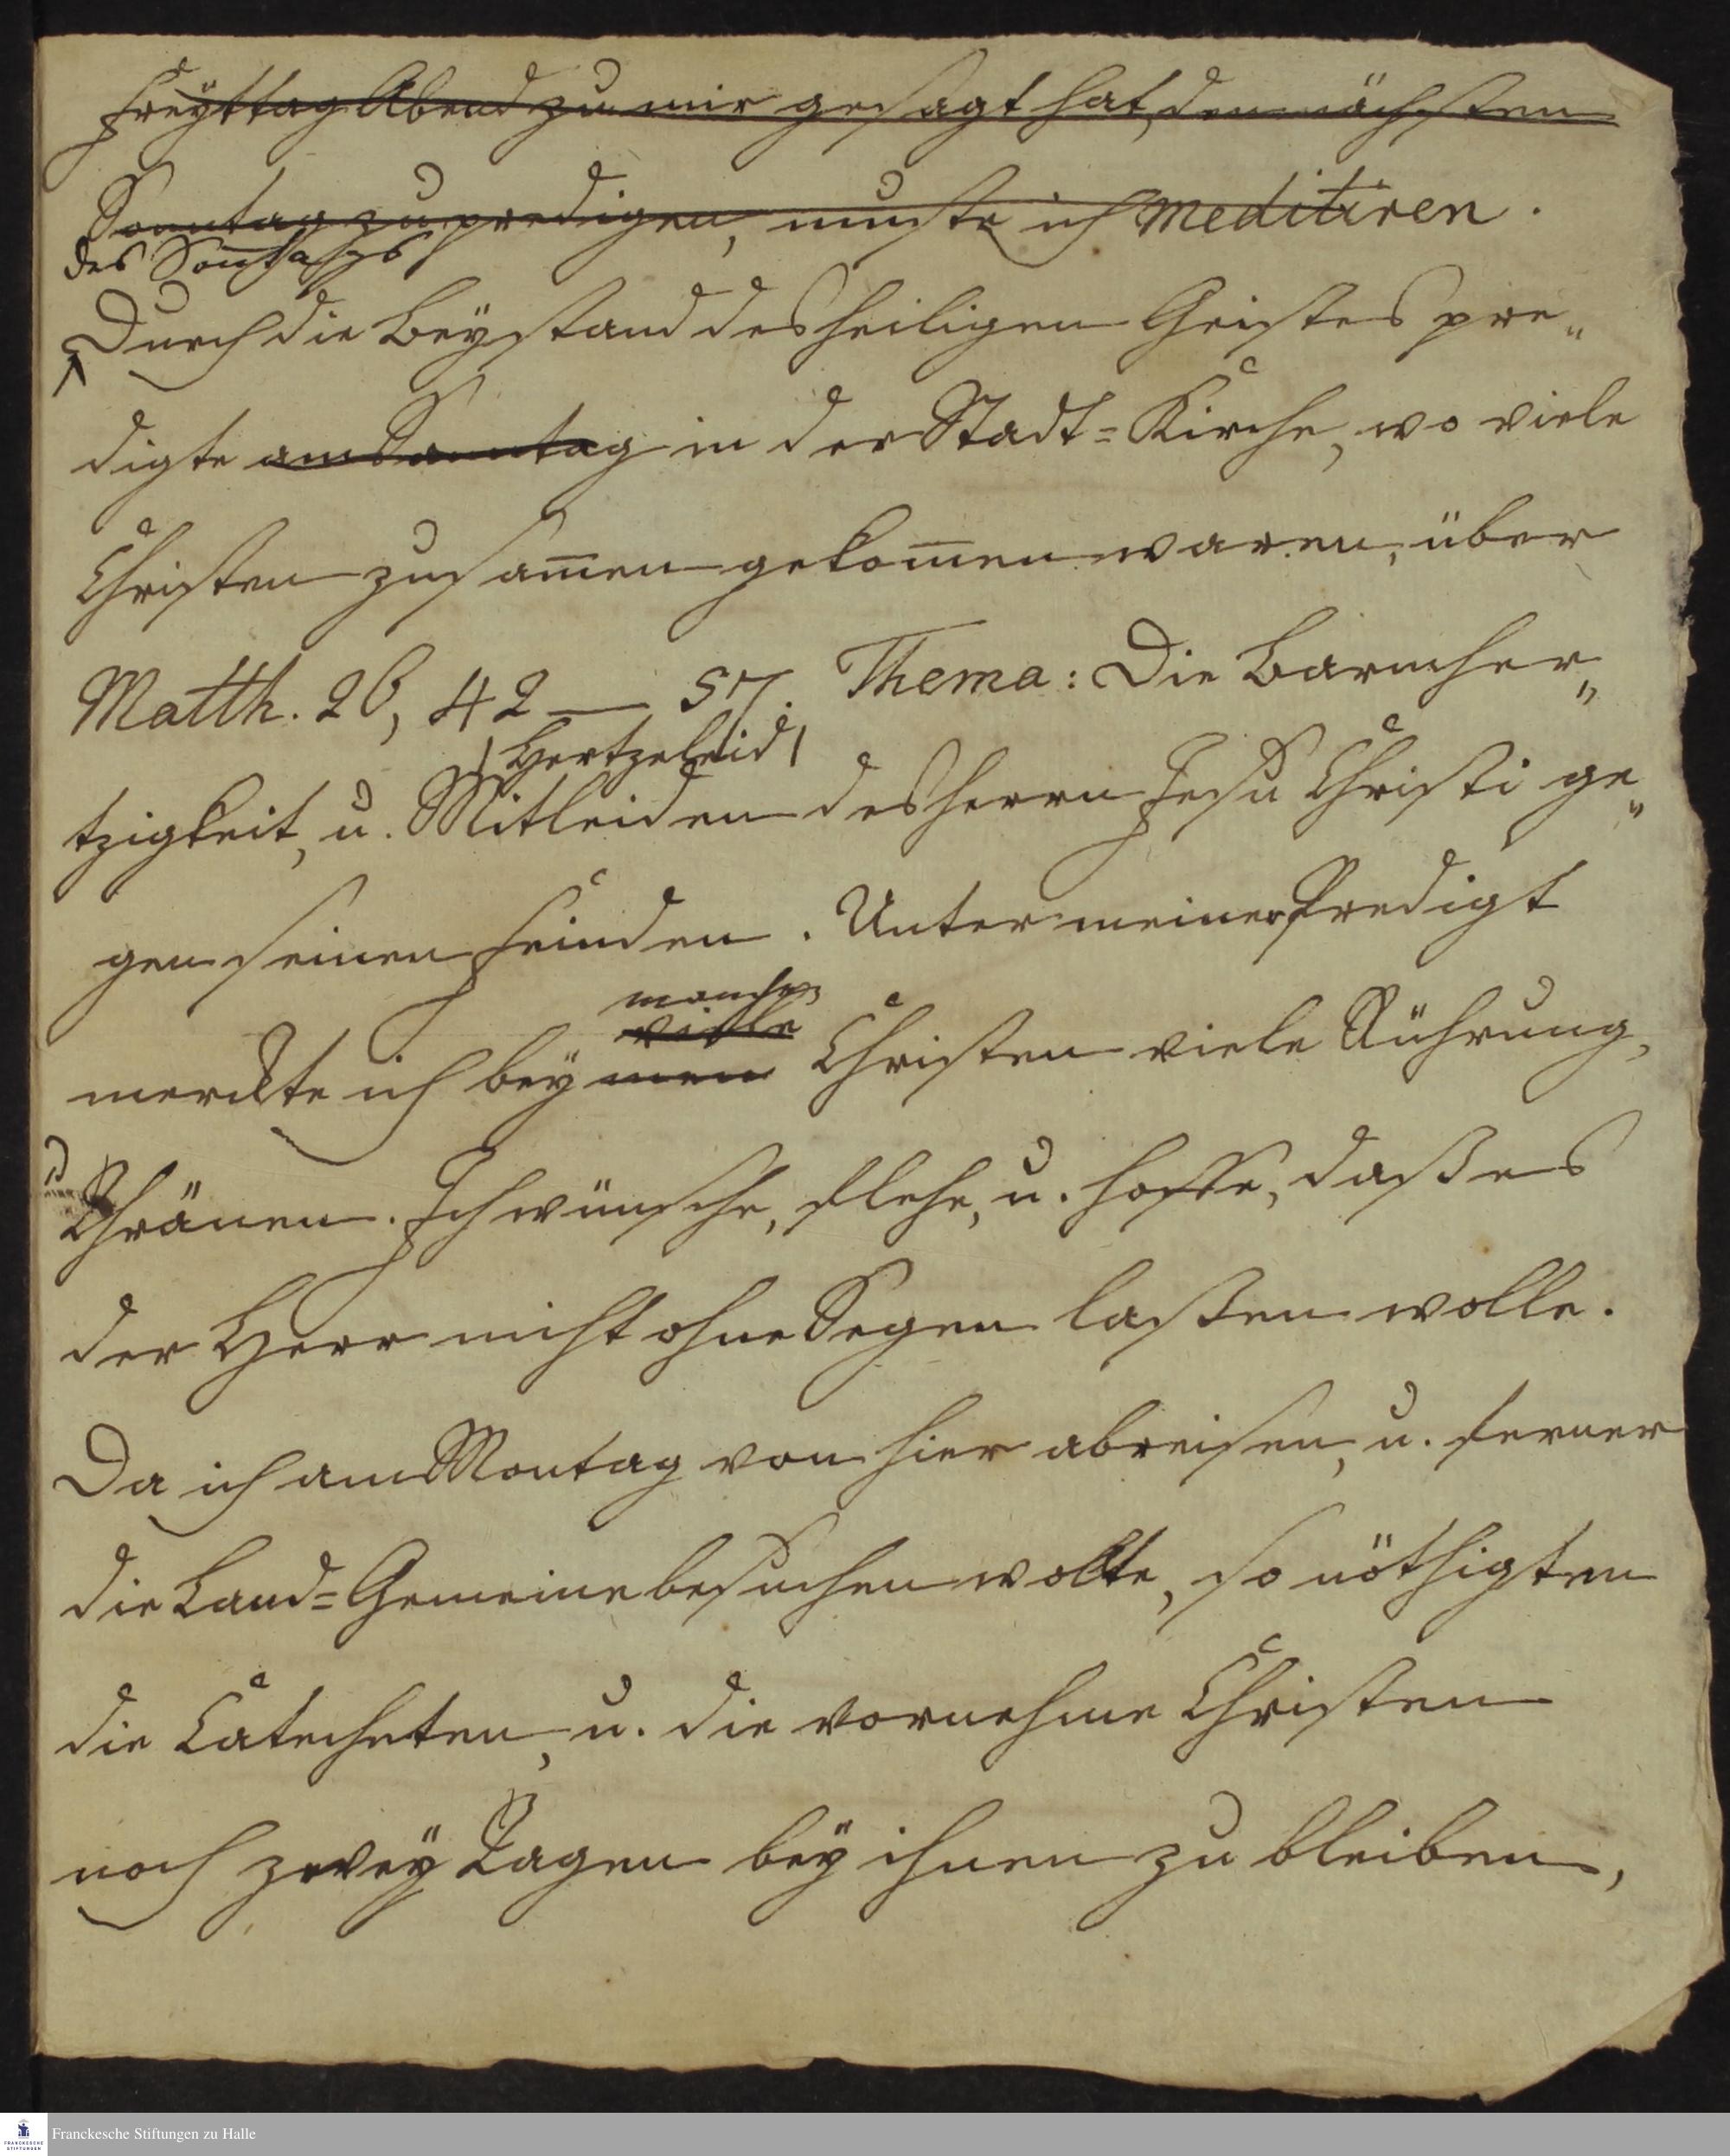 Freyttag Abend zu mir gesagt hat, den nächsten
Sonntag zu predigen, muste ich meditiren.
des Sontags
Durch die Beystand des heiligen Geistes pre„
digte am Sonntag in der Stadt=Kirche, wo viele
Christen zusam̅en gekom̅en waren, über
Matth. 26, 42 — 57. Thema: Die Barmher„
Hertzeleid
tzigkeit, u. Mitleiden des Herrn Jesu Christi ge„
gen seinen Feinden. Unter meiner Predigt
manchen
viele
merckte ich bey Christen viele Rührung,
Thränen. Ich wünsche, flehe, u. hoffe, daß es
der Herr nicht ohne Segen laßen wolle.
Da ich am Montag von hier abreisen, u. ferner
die Land=Gemeine besuchen wollte, so nöthigten
die Catecheten, u. die vornehme Christen
noch zwey Tagen bey ihnen zu bleiben,
Franckesche Stiftungen zu Halle